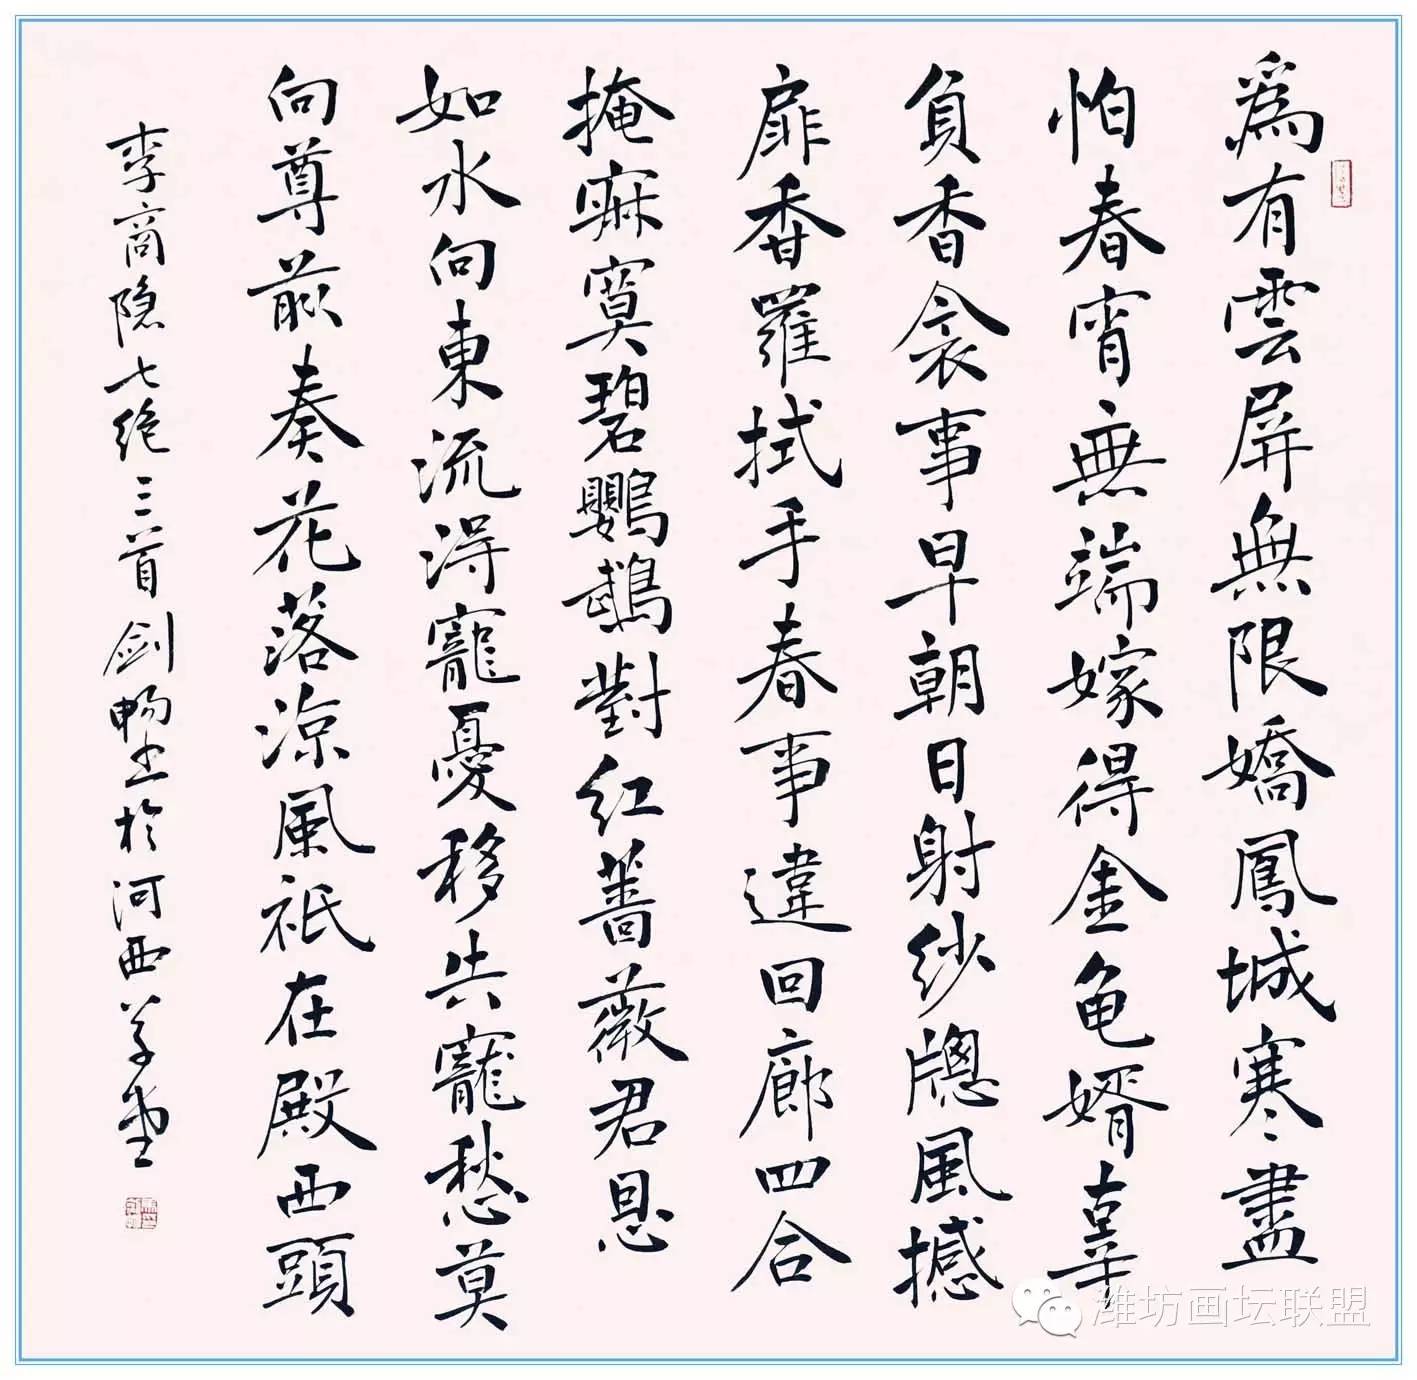 爲有雲屏無限嬌鳳城寒盡
怕春宵無端嫁得金龟婿辜
負香衾事早朝日射紗牕風撼
扉香羅拭手春事違回廊四合
掩寂寞碧鸚鵡對紅薔薇君恩
如水向東流得寵憂移失寵愁莫
向尊前奏花落涼風祇在殿西頭
李商隐七绝三首剑畅书於河西草堂
潍坊画坛联盟